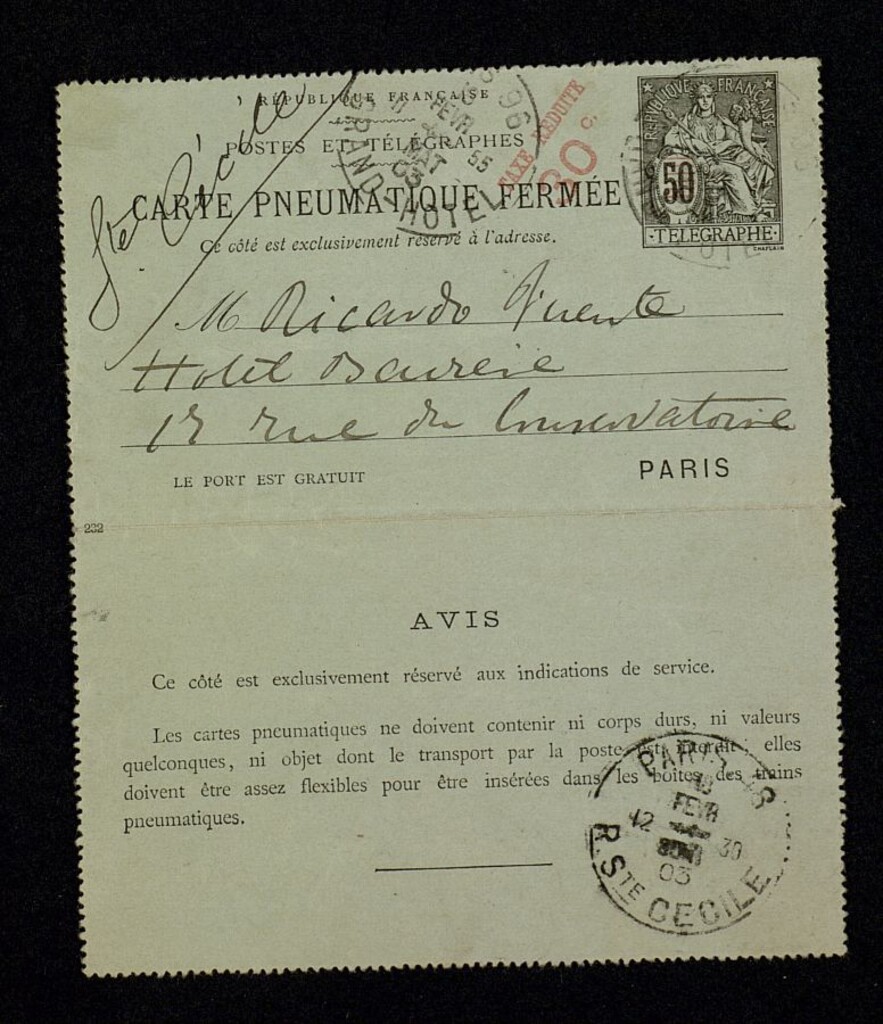 RÉPUBLIQUE FRANÇAISE
POSTES ET TÉLÉGRAPHES
CARTE PNEUMATIQUE FERMÉE
Ce côté est exclusivement réservé à l'adresse.
Ste Cécile
96
FEVR
55
03
GRAND HOTEL
TAXE RÉDUITE
30c
REPUBLIQUE FRANÇAISE
50
TELEGRAPHE
CHAPLAIN
M Ricardo Fuente
Hotel
rue du Conservatoire
LE PORT EST GRATUIT
PARIS
232
AVIS
Ce côté est exclusivement réservé aux indications de service.
Les cartes pneumatiques ne doivent contenir ni corps durs, ni valeurs
quelconques, ni objet dont le transport par la poste est interdit; elles
doivent être assez flexibles pour être insérées dans les boîtes des trains
pneumatiques.
PARIS
FEVR
12 30
03
R. STE CECILE